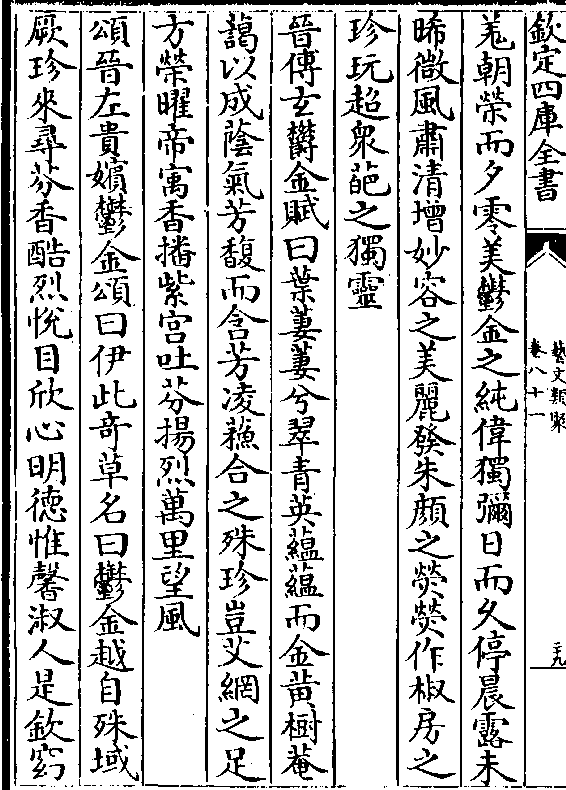 欽定四庫全書
藝文類聚
卷八十一
二十九
羗朝榮而夕零美鬱金之純偉獨彌日而久停晨露未
晞微風肅清增妙容之美麗發朱顔之熒熒作椒房之
珍玩超衆葩之獨靈
晉傅玄鬱金賦曰葉萋萋兮翠青英蘊蘊而金黄樹菴
藹以成蔭氣芳馥而含芳凌蘓合之殊珍豈艾網之足
方榮曜帝寓香播紫宫吐芬揚烈萬里望風
頌晉左貴嬪鬱金頌曰伊此奇草名曰鬱金越自殊域
厥珍來尋芬香酷烈悅目欣心明德惟馨淑人是欽窈